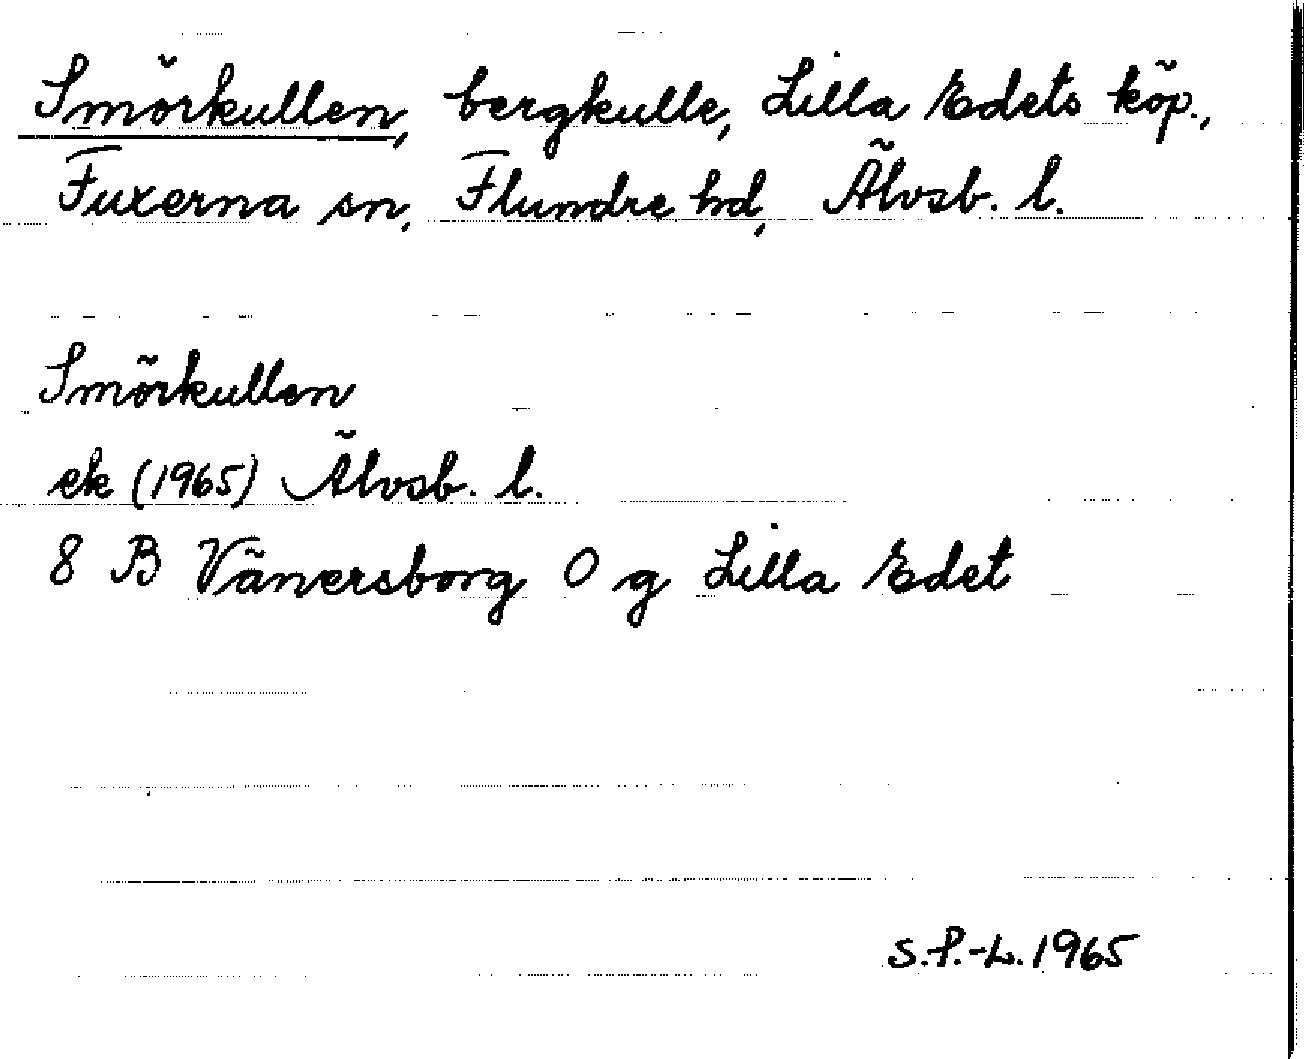 Smörkullen, bergkulle, Lilla Edets köp.,
Fuxerna sn, Flundre hd, Älvsb. l.
Smörkullen
ek (1965) Älvsb. l.
8 B Vänersborg 0 g Lilla Edet
S.P.-L. 1965